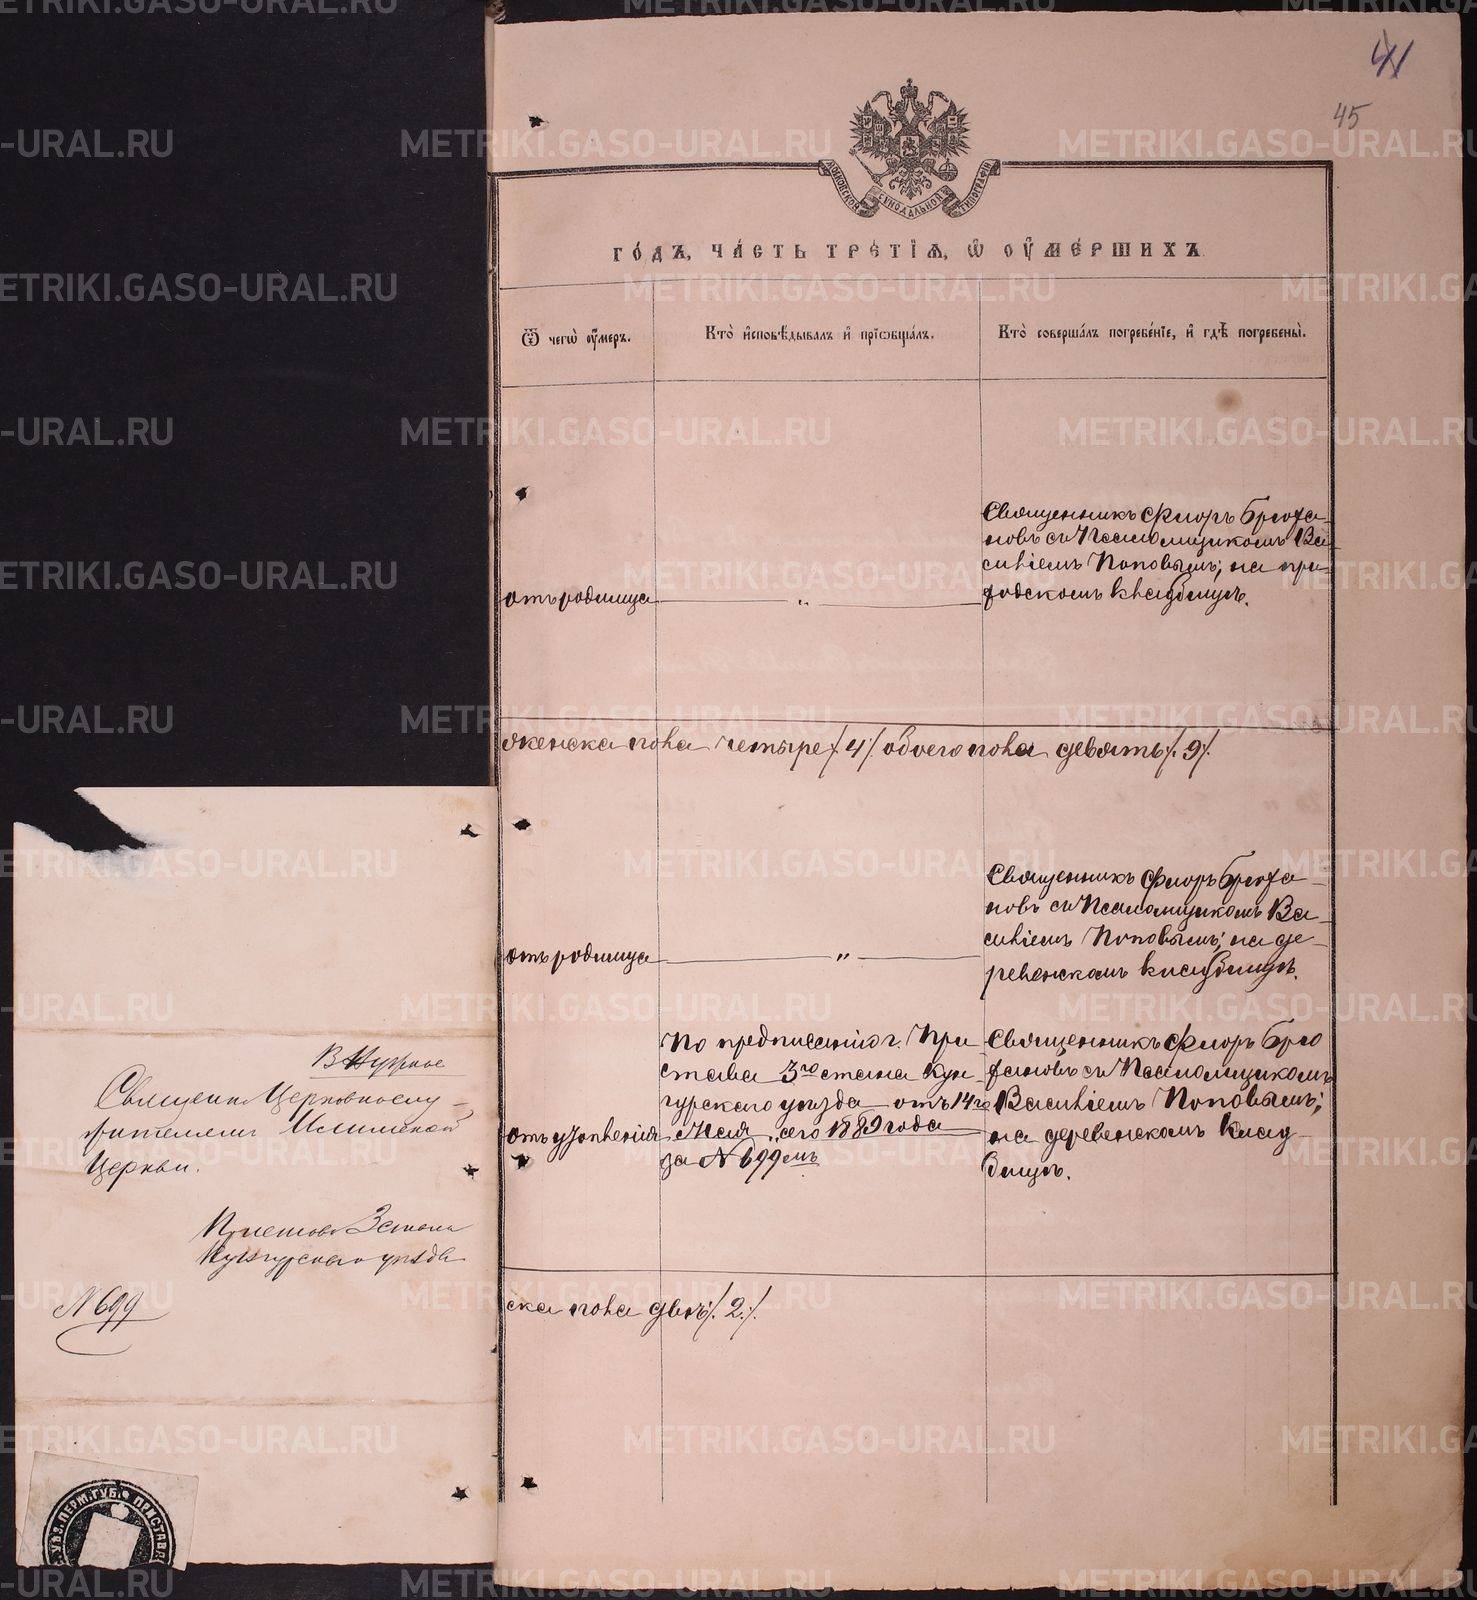 41
45
МОСКОВСКОЙ СѴНОДАЛЬНОЙ ТИПОГРАФІИ
ГОДЪ, ЧАСТЬ ТРЕТІЯ, Ѿ ОУМЕРШИХЪ
Ѿ чегѡ оумеръ.
Кто исповѣдывалъ и пріѡбщалъ.
Кто совершалъ погребеніе, и гдѣ погребены.
отъ родимца
"
Священникъ Флоръ Брюха-
новъ съ Псаломщикомъ Ва-
силіемъ Поповымъ; на при-
ходскомъ кладбищѣ.
женска пола четыре /.4./ обоего пола девять /.9./
отъ родимца
"
Священникъ Флоръ Брюха-
новъ съ Псаломщикомъ Ва-
силіемъ Поповымъ; на де-
ревенскомъ кладбищѣ.
отъ утопленія
По предписанію г. При
става 3го стана Кун-
гурскаго уѣзда отъ 14го
Мая сего 1889 года
за № 699мъ
Священникъ Флоръ Брю
хановъ съ Псаломщикомъ
Василіемъ Поповымъ;
на деревенскомъ клад-
бищѣ.
ска пола двѣ /.2./
В Нужное
Священно Церковнослу-
жителямъ Илимской
Церкви.
Пристава 3 стана
Кунгурскаго уѣзда
№ 699
УѢЗ. ПЕРМ. ГУБ. ПРИСТАВА
METRIKI.GASO-URAL.RU